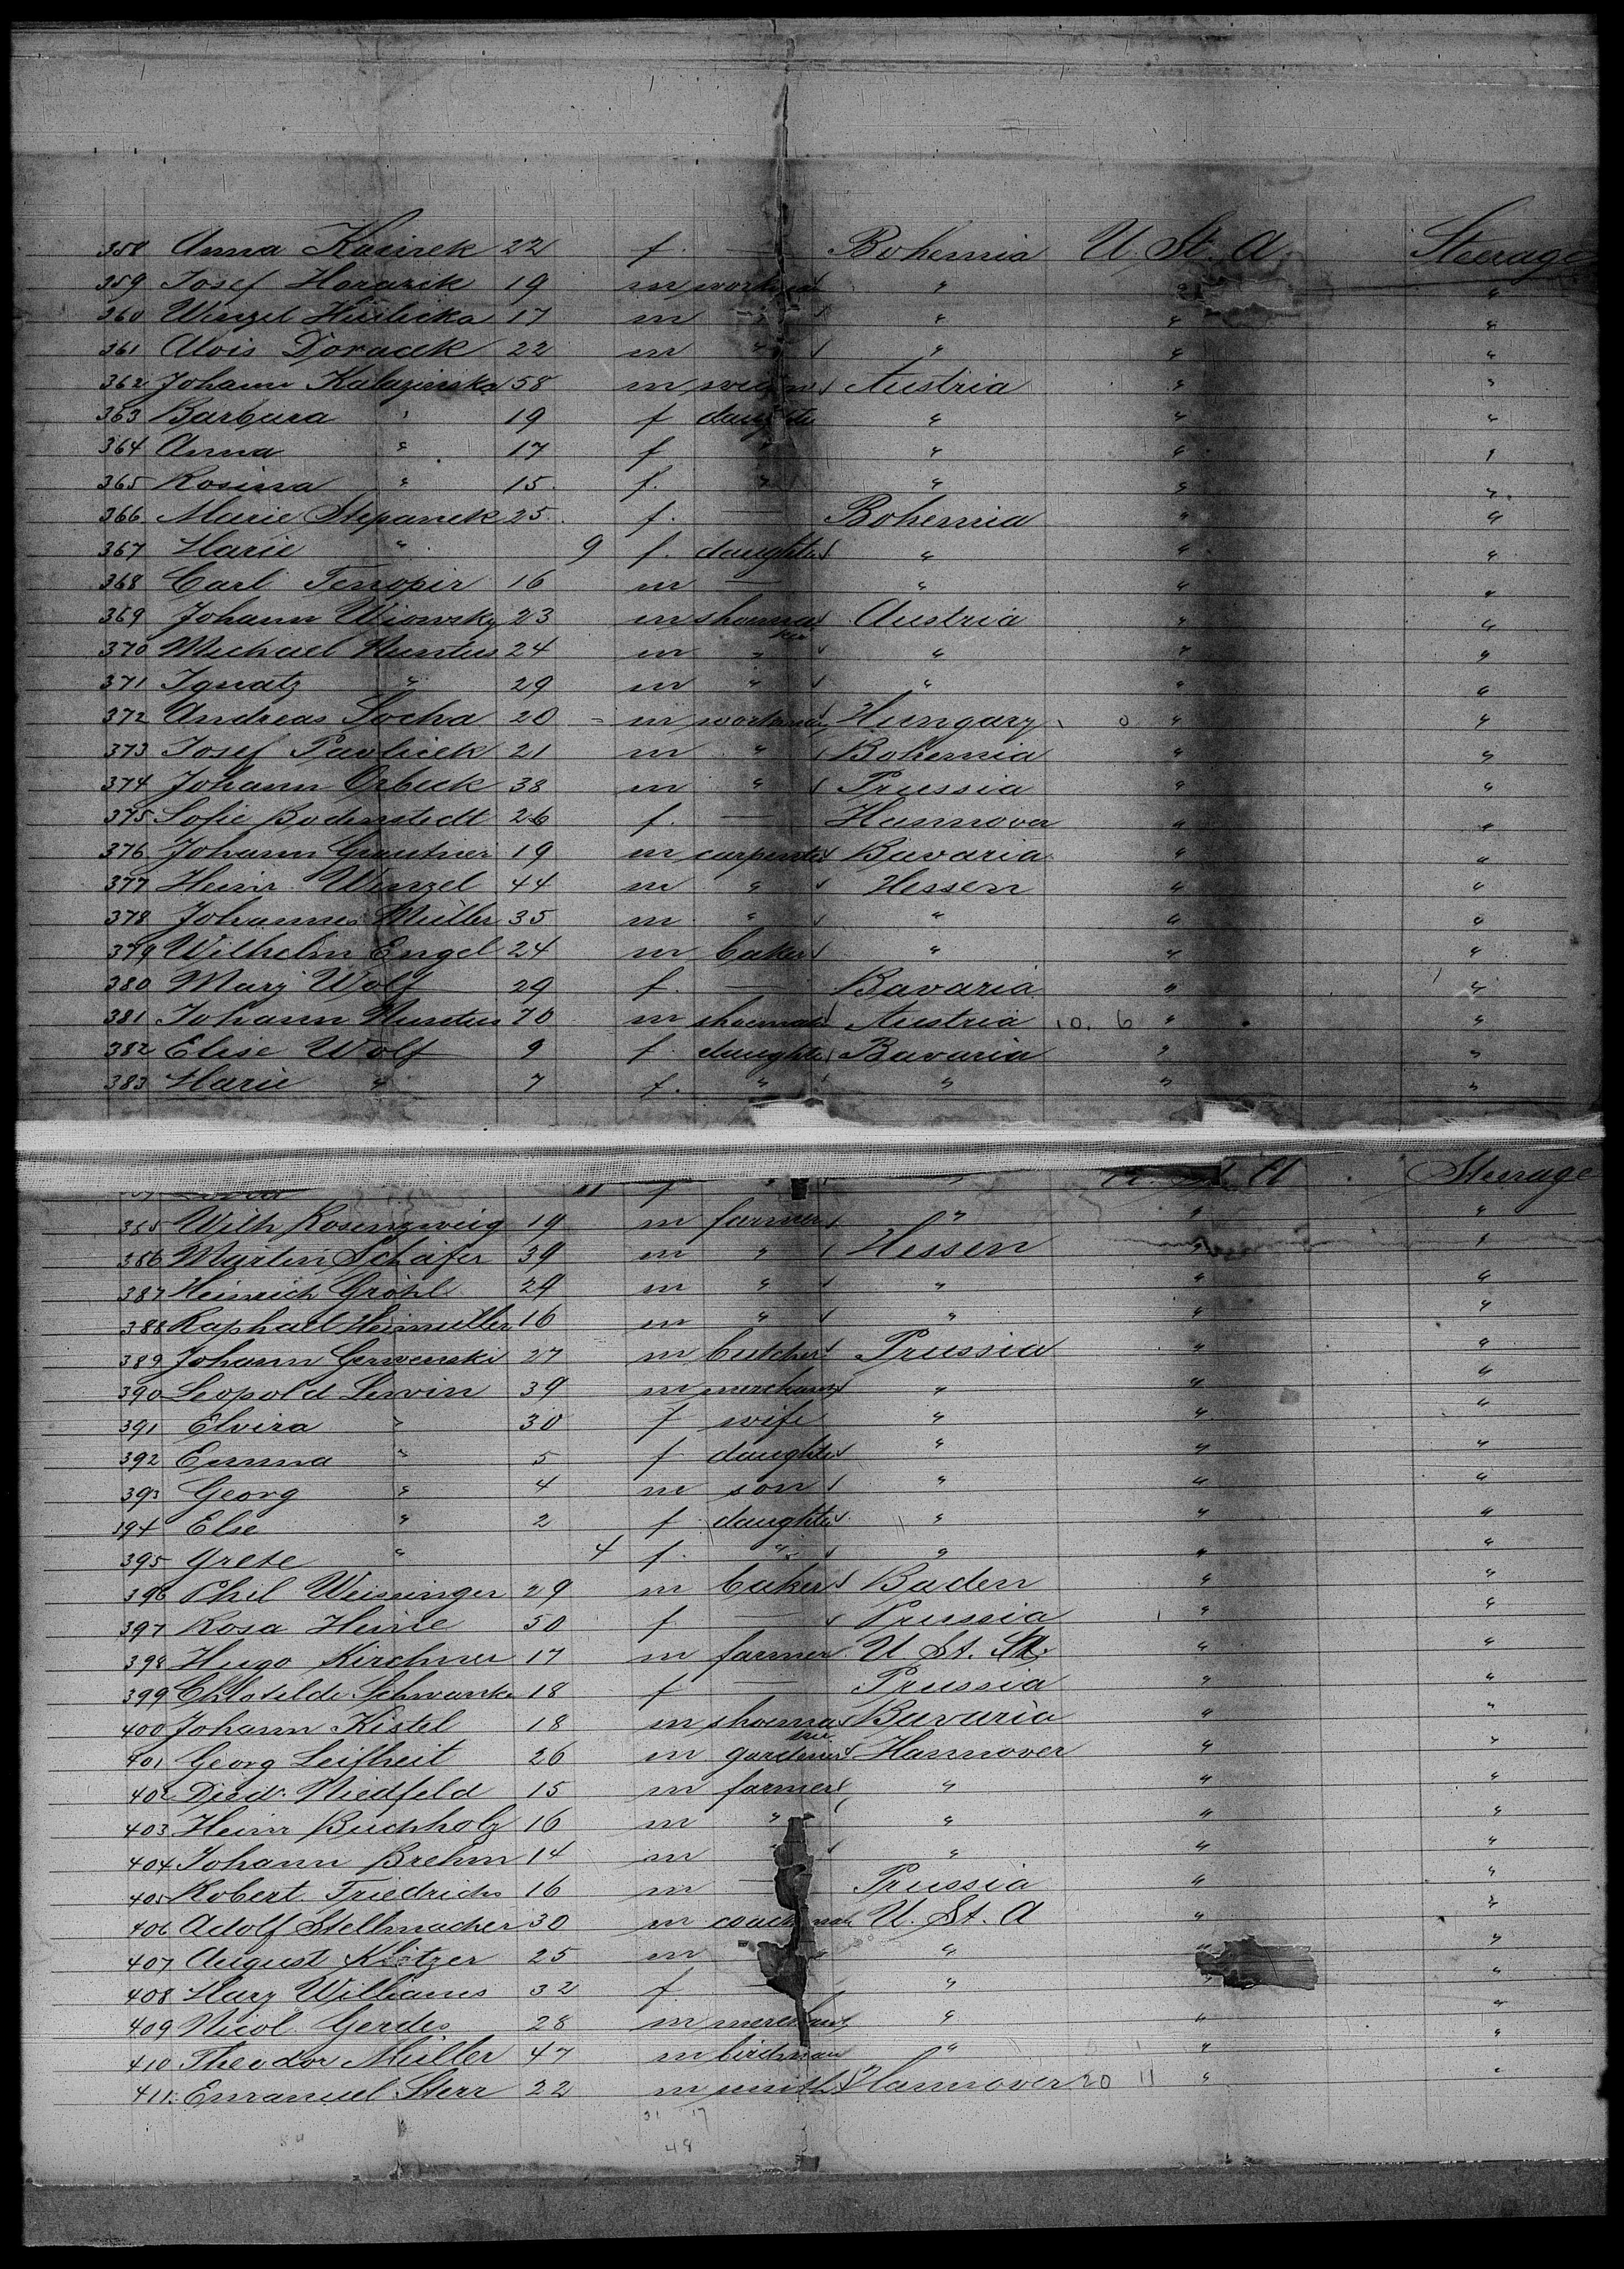 358 Anna Kacirek 22 f. — Bohemia U. St. A. Steerage
359 Josef Horazik 19 m workman " " "
360 Wenzel Hürlicka 17 m " " " "
361 Alois Doracek 22 m " " " "
362 Johann Kalazinska 58 m Austria " "
363 Barbara " 19 f daughter " " "
364 Anna " 17 f " " " "
365 Rosina " 15. f. " " " "
366 Marie Stepanek 25. f. — Bohemia " "
367 Marie " 9 f. daughter " " "
368 Carl Tenopir 16 m — " " "
369 Johann Wiowsky 23 m shoemaker Austria " "
370 Michael Huntus 24 m " " " "
371 Ignatz " 29 m " " " "
372 Andreas Socha 20 - m workman Hungary 0 " "
373 Josef Pavlicek 21 m " Bohemia " "
374 Johann Orbeck 38 m " Prussia " "
375 Sofie Bodenstedt 26 f. — Hannover " "
376 Johann Grautner 19 m carpenter Bavaria " "
377 Heinr. Wenzel 44 m " Hessen " "
378 Johannes Müller 35 m " " " "
379 Wilhelm Engel 24 m baker " " "
380 Mary Wolf 29 f. — Bavaria " "
381 Johann Huntus 70 m shoemaker Austria 10. 6 " "
382 Elise Wolf 9 f. daughter Bavaria " "
383 Marie " 7 f. " " " "
11 f " " U. St. A Steerage
385 Wilh Rosenzweig 19 m farmer " " "
386 Martin Schäfer 39 m " Hessen " "
387 Heinrich Gröhl 29 m " " " "
388 Raphael Heimüller 16 m " " " "
389 Johann Gerwenski 27 m butcher Prussia " "
390 Leopold Lewin 39 m merchant " " "
391 Elvira " 30 f wife " " "
392 Emma " 5 f daughter " " "
393 Georg " 4 m son " " "
394 Else " 2 f daughter " " "
395 Grete " 4 f. " " " "
396 Phil Weissinger 29 m baker Baden " "
397 Rosa Heine 50 f — Prussia " "
398 Hugo Kirchner 17 m farmer U St. A. " "
399 Chlotilde Schwanke 18 f — Prussia " "
400 Johann Kistel 18 m shoemaker Bavaria " "
401 Georg Leifheit 26 m gardener Hannover " "
402 Died. Niedfeld 15 m farmer " " "
403 Heinr Buchholz 16 m " " " "
404 Johann Brehm 14 m " " " "
405 Robert Friedrichs 16 m — Prussia " "
406 Adolf Stellmacher 30 m coachman U. St. A " "
407 August Klitzer 25 m " " " "
408 Mary Williams 32 f — " " "
409 Nicol. Gerdes 28 m merchant " " "
410 Theodor Müller 47 m birdman " " "
411. Emanuel Sterr 22 m smith Hannover 20 11 " "
31 17
54 48